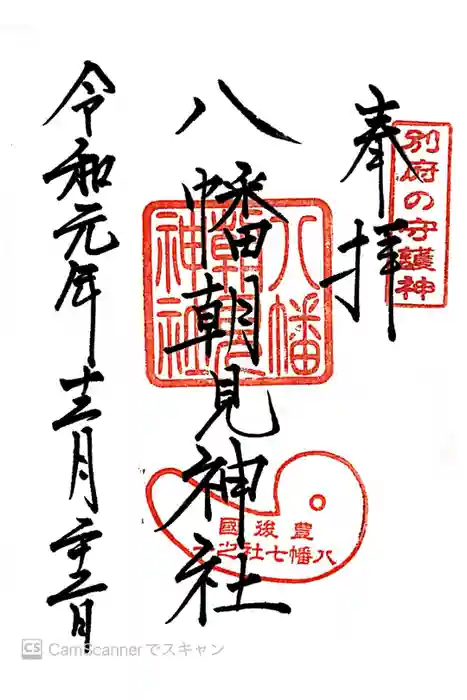 奉拝
別府の守護神
八幡朝見神社
八幡朝見神社
豊後國
八幡七社之一
令和元年十二月二十二日
CS CamScannerでスキャン